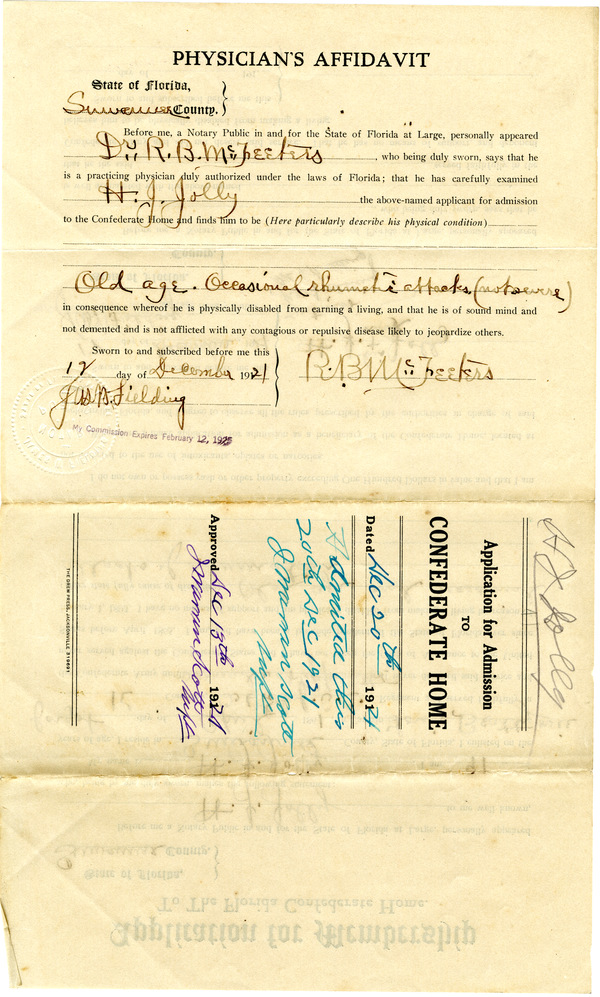 PHYSICIAN'S AFFIDAVIT
State of Florida,
Suwannee County.
Before me, a Notary Public in and for the State of Florida at Large, personally appeared
Dr. R. B. McFeeters, who being duly sworn, says that he
is a practicing physician duly authorized under the laws of Florida; that he has carefully examined
H. J. Jolly the above-named applicant for admission
to the Confederate Home and finds him to be (Here particularly describe his physical condition)
Old age. Occasional rhumetic attacks (not severe)
in consequence whereof he is physically disabled from earning a living, and that he is of sound mind and
not demented and is not afflicted with any contagious or repulsive disease likely to jeopardize others.
Sworn to and subscribed before me this
12 day of December 1921
R. B. McFeeters
Fielding
My Commission Expires February 12, 1925
H J Jolly
Application for Admission
TO
CONFEDERATE HOME
Dated Dec 20th 1921
Admitted this
20th Dec 1921
Scott
Supt
Approved Dec 13th 1921
Scott
Supt
THE DREW PRESS, JACKSONVILLE